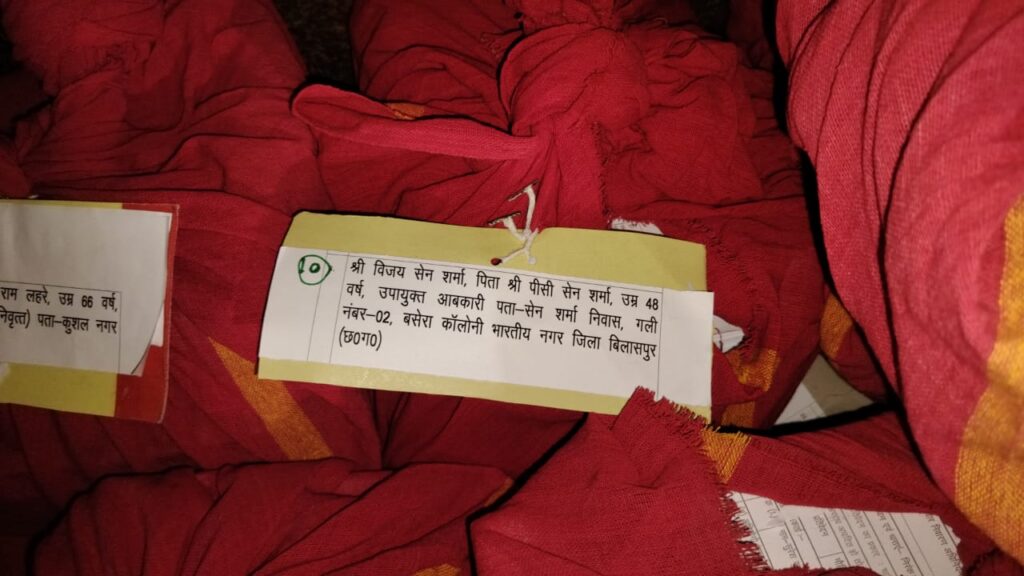 राम लहरे, उम्र 66 वर्ष,
निवृत्त) पता–कुशल नगर
10
श्री विजय सेन शर्मा, पिता श्री पीसी सेन शर्मा, उम्र 48
वर्ष, उपायुक्त आबकारी पता–सेन शर्मा निवास, गली
नंबर–02, बसेरा कॉलोनी भारतीय नगर जिला बिलासपुर
(छ0ग0)